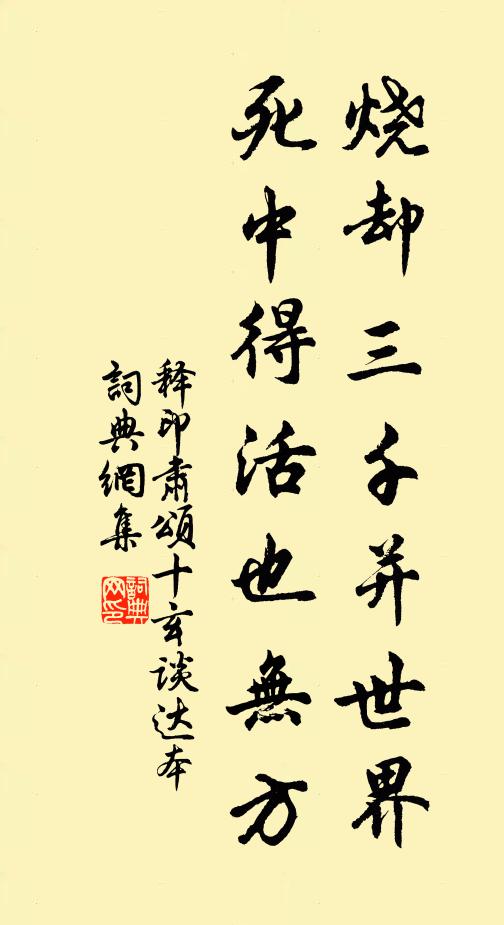 烧却三千并世界
死中得活也無方
释印肃頌十玄谈达本
詞典網集
詞典网印